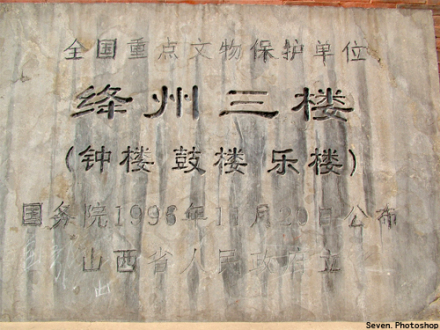 全国重点文物保护单位
绛州三楼
(钟楼 鼓楼 乐楼)
国务院1996年11月20日公布
山西省人民政府立
Seven. Photoshop